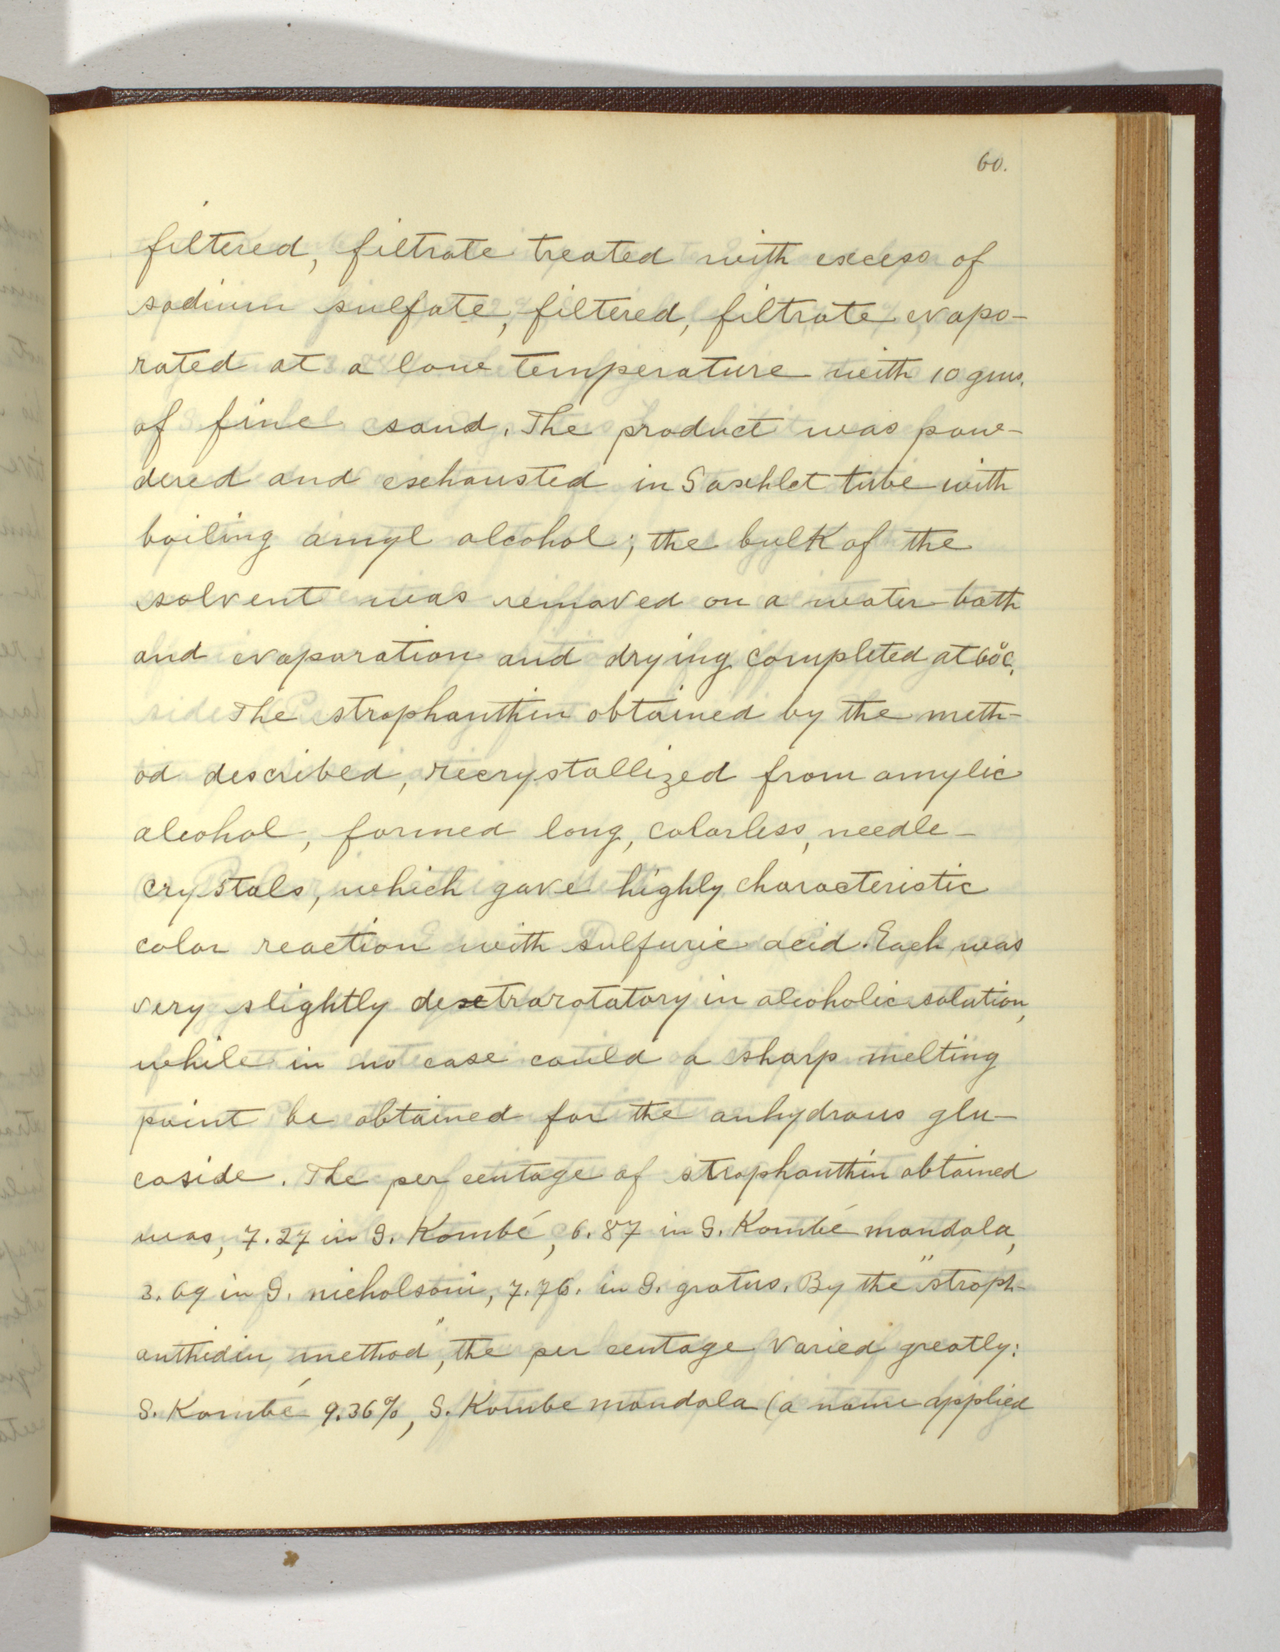 60.
filtered, filtrate treated with excess of
sodium sulfate, filtered, filtrate evapo-
rated at a low temperature with 10 gms.
of fine sand. The product was pow-
dered and exhausted in Soxhlet tube with
boiling amyl alcohol; the bulk of the
solvent was removed on a water-bath
and evaporation and drying completed at 60°C.
The strophanthin obtained by the meth-
od described, recrystallized from amylic
alcohol, formed long, colorless, needle-
crystals, which gave highly characteristic
color reaction with sulfuric acid. Each was
very slightly dextrarotatory in alcoholic solution,
while in no case could a sharp melting
point be obtained for the anhydrous glu-
coside. The per centage of strophanthin obtained
was, 7.27 in S. Kombé, 6.87 in S. Kombé mandala,
3.69 in S. nicholsoni, 7.76. in S. gratus. By the "stroph-
anthidin method", the per centage varied greatly:
S. Kombé 9.36%, S. Kombe mandala (a name applied